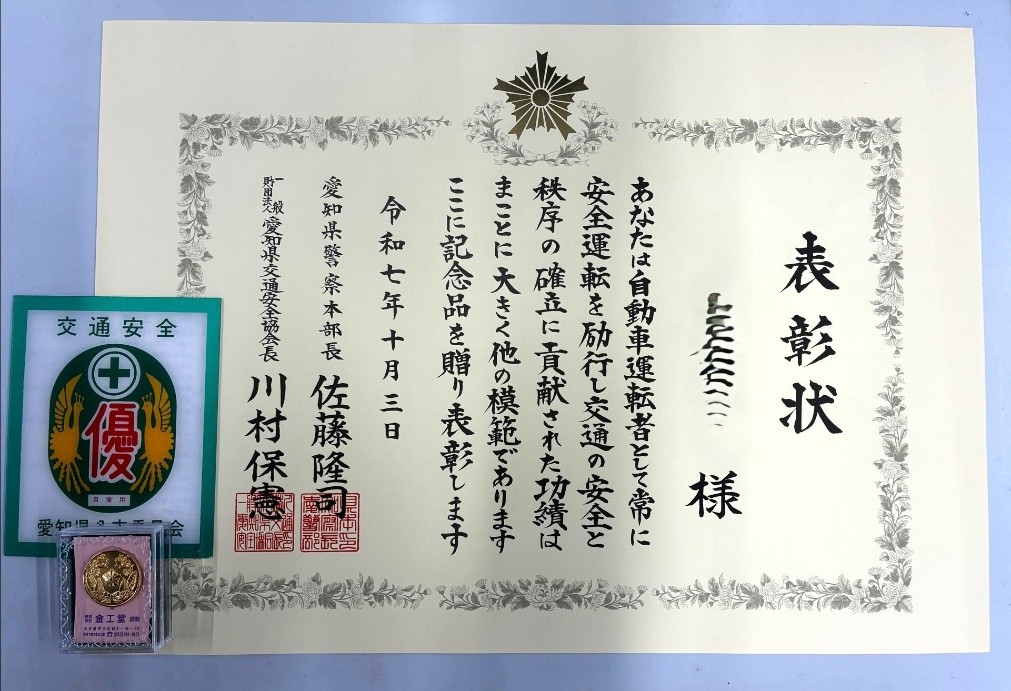 表彰状
様
あなたは自動車運転者として常に
安全運転を励行し交通の安全と
秩序の確立に貢献された功績は
まことに大きく他の模範であります
ここに記念品を贈り表彰します
令和七年十月三日
愛知県警察本部長 佐藤隆司
一般財団法人 愛知県交通安全協会長 川村保憲
交通安全
優
自家用
愛知県公安委員会
金工堂